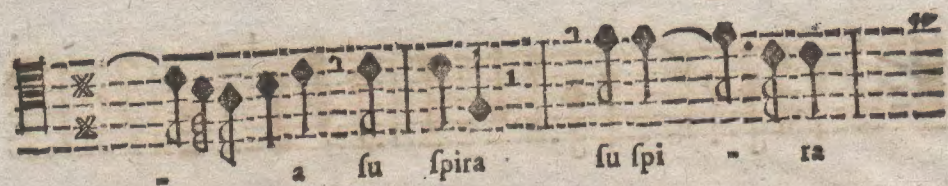 - a ſu ſpira ſu ſpi - ra